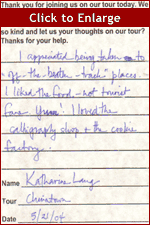 Click to Enlarge
Thank you for joining us on our tour today. We
so kind and let us your thoughts on our tour?
Thanks for your help.
I appreciated being taken to
"off-the-beaten-track" places.
I liked the food - not tourist
fare - Yum! I loved the
calligraphy shop & the cookie
factory.
Name Katharine Lang
Tour Chinatown
Date 5/21/04